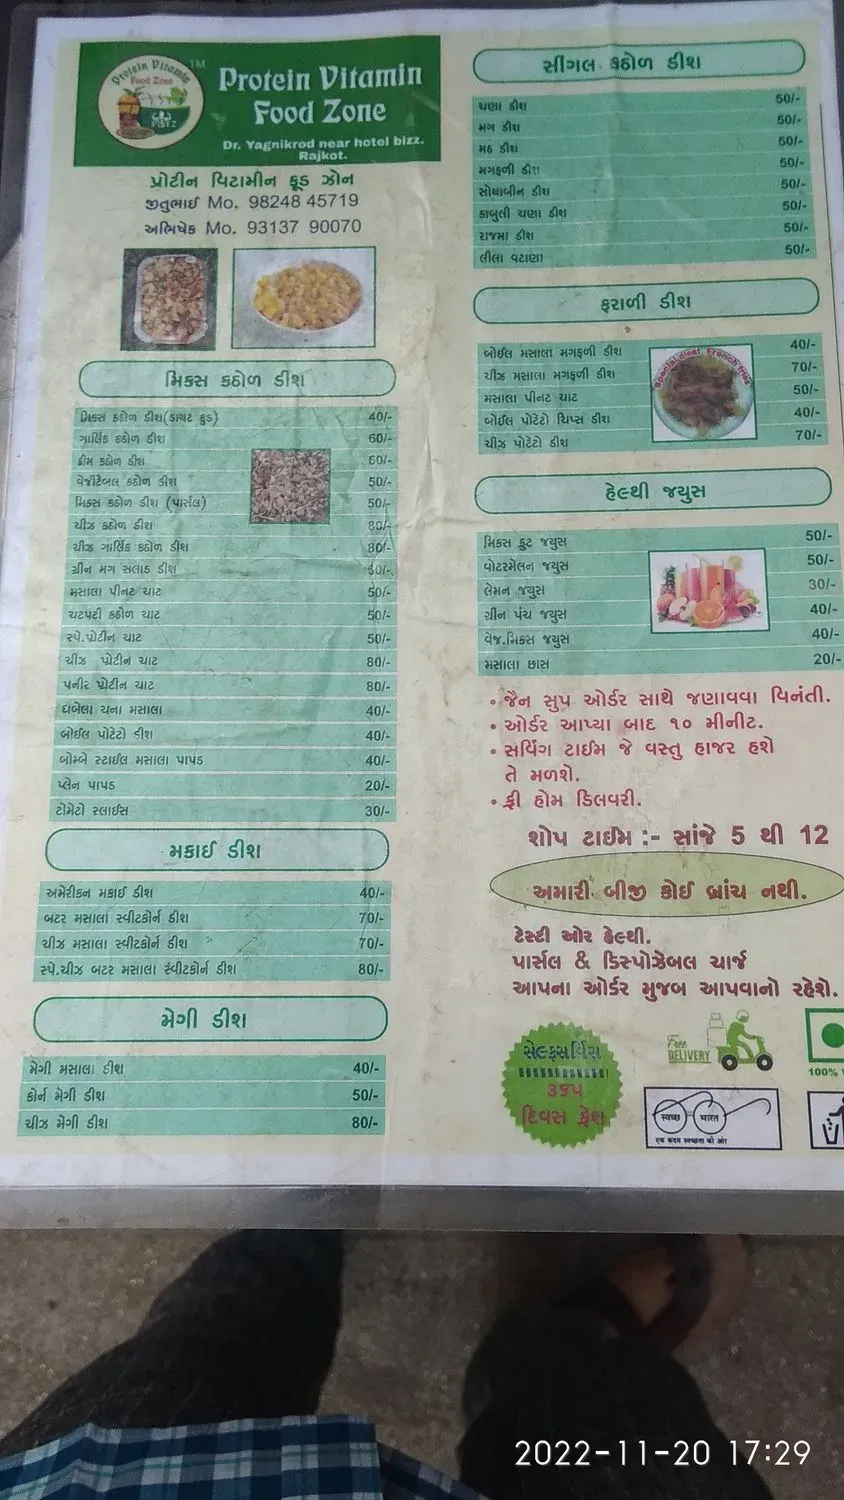 Protein Vitamin
Food Zone
TM
Protein Vitamin
Food Zone
Dr. Yagnikrod near hotel bizz.
Rajkot.
પ્રોટીન વિટામીન ફૂડ ઝોન
જીતુભાઈ Mo. 98248 45719
અભિષેક Mo. 93137 90070
મિકસ કઠોળ ડીશ
મિકસ કઠોળ ડીશ(ડાયટ ફુડ) 40/-
ગાર્લિક કઠોળ ડીશ 60/-
ક્રીમ કઠોળ ડીશ 60/-
વેજીટેબલ કઠોળ ડીશ 50/-
મિકસ કઠોળ ડીશ (પાર્સલ) 50/-
ચીઝ કઠોળ ડીશ 80/-
ચીઝ ગાર્લિક કઠોળ ડીશ 80/-
ગ્રીન મગ સલાડ ડીશ
મસાલા પીનટ ચાટ 50/-
ચટપટી કઠોળ ચાટ 50/-
સ્પે.પ્રોટીન ચાટ 50/-
ચીઝ પ્રોટીન ચાટ 80/-
પનીર પ્રોટીન ચાટ 80/-
ચના મસાલા 40/-
બોઈલ પોટેટો ડીશ 40/-
બોમ્બે સ્ટાઈલ મસાલા પાપડ 40/-
પ્લેન પાપડ 20/-
ટોમેટો સ્લાઈસ 30/-
મકાઈ ડીશ
અમેરીકન મકાઈ ડીશ 40/-
બટર મસાલા સ્વીટકોર્ન ડીશ 70/-
ચીઝ મસાલા સ્વીટકોર્ન ડીશ 70/-
સ્પે.ચીઝ બટર મસાલા સ્વીટકોર્ન ડીશ 80/-
મેગી ડીશ
મેગી મસાલા ડીશ 40/-
કોર્ન મેગી ડીશ 50/-
ચીઝ મેગી ડીશ 80/-
સીંગલ કઠોળ ડીશ
ચણા ડીશ 50/-
મગ ડીશ 50/-
મઠ ડીશ 50/-
મગફળી ડીશ 50/-
સોયાબીન ડીશ 50/-
કાબુલી ચણા ડીશ 50/-
રાજમા ડીશ 50/-
લીલા વટાણા 50/-
ફરાળી ડીશ
બોઈલ મસાલા મગફળી ડીશ 40/-
ચીઝ મસાલા મગફળી ડીશ 70/-
મસાલા પીનટ ચાટ 50/-
બોઈલ પોટેટો ચિપ્સ ડીશ 40/-
ચીઝ પોટેટો ડીશ 70/-
Special dieat French fries
હેલ્થી જયુસ
મિકસ ફ્રુટ જયુસ 50/-
વોટરમેલન જયુસ 50/-
લેમન જયુસ 30/-
ગ્રીન પંચ જયુસ 40/-
વેજ.મિકસ જયુસ 40/-
મસાલા છાસ 20/-
• જૈન સુપ ઓર્ડર સાથે જણાવવા વિનંતી.
• ઓર્ડર આપ્યા બાદ ૧૦ મીનીટ.
• સર્વિંગ ટાઈમ જે વસ્તુ હાજર હશે
તે મળશે.
• ફ્રી હોમ ડિલવરી.
શોપ ટાઈમ :- સાંજે 5 થી 12
અમારી બીજી કોઈ બ્રાંચ નથી.
ટેસ્ટી ઓર હેલ્થી.
પાર્સલ & ડિસ્પોઝેબલ ચાર્જ
આપના ઓર્ડર મુજબ આપવાનો રહેશે.
સેલ્ફસર્વિસ
૩૬૫
દિવસ ફ્રેશ
Free
DELIVERY
100%
स्वच्छ भारत
एक कदम स्वच्छता की ओर
2022-11-20 17:29